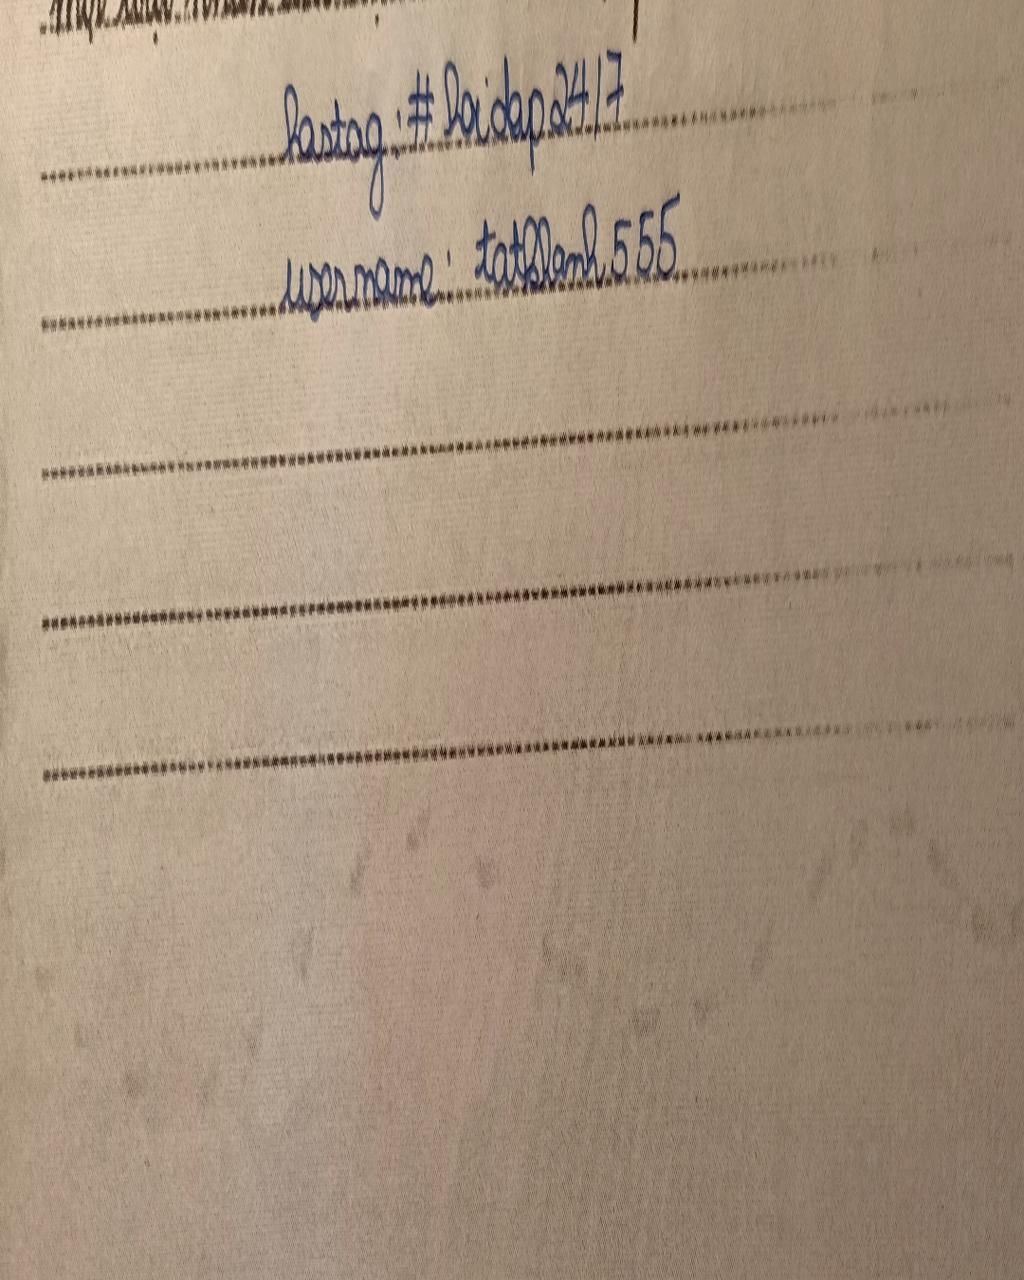 hastag: #hoidap24/7
username: tatthanh555